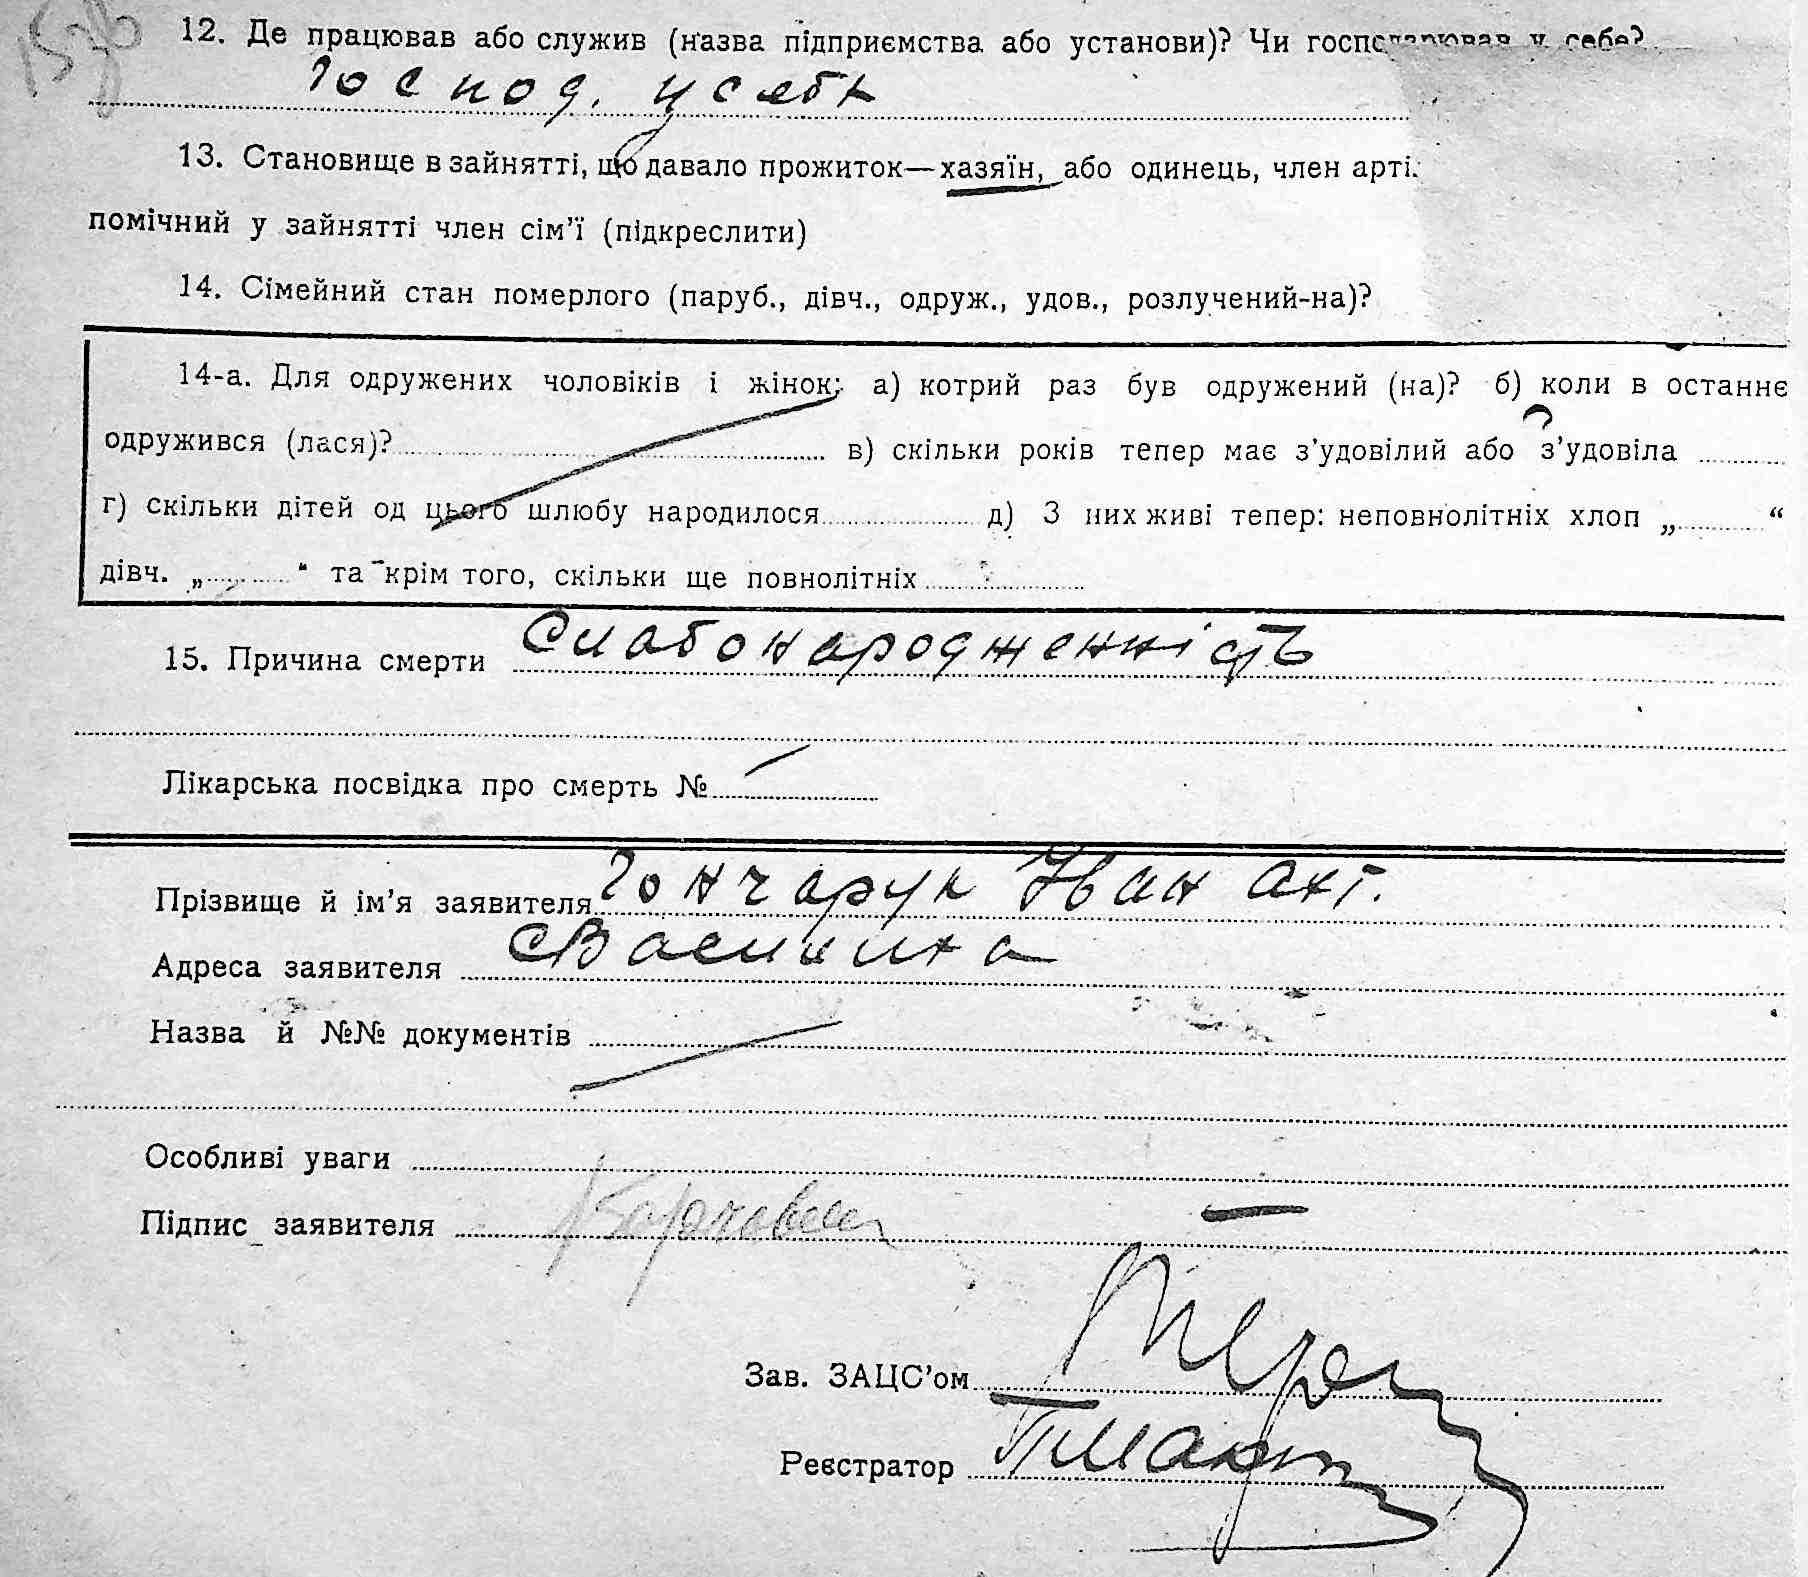 12. Де працював або служив (назва підприємства або установи)? Чи господарював у себе?
Господ. у себе
13. Становище в зайнятті, що давало прожиток—хазяїн, або одинець, член арті
помічний у зайнятті член сім'ї (підкреслити)
14. Сімейний стан померлого (паруб., дівч., одруж., удов., розлучений-на)?
14-а. Для одружених чоловіків і жінок: а) котрий раз був одружений (на)? б) коли в останнє
одружився (лася)? в) скільки років тепер має з'удовілий або з'удовіла
г) скільки дітей од цього шлюбу народилося д) З них живі тепер: неповнолітніх хлоп „ “
дівч. „ “ та крім того, скільки ще повнолітніх
15. Причина смерти Слабонародженність
Лікарська посвідка про смерть №
Прізвище й ім'я заявителя Гончарук Іван
Адреса заявителя
Назва й №№ документів
Особливі уваги
Підпис заявителя
Зав. ЗАЦС'ом
Реєстратор